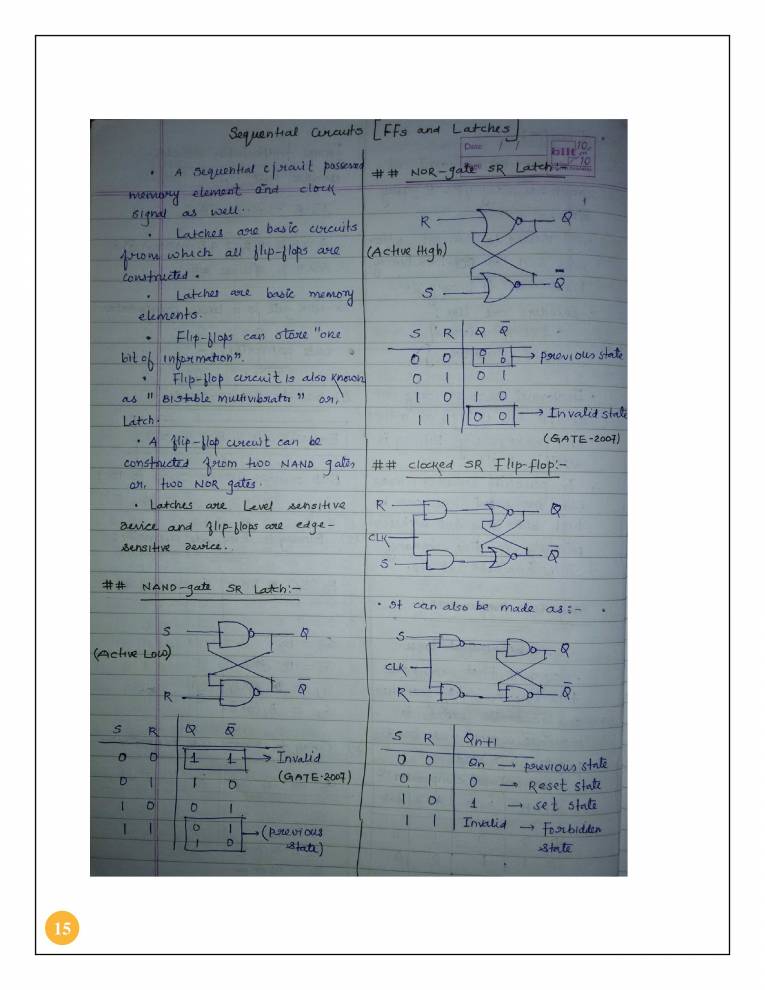 Sequential Circuits [FFs and Latches]
Date / /
bilt
• A sequential circuit possesses
memory element and clock
signal as well.
• Latches are basic circuits
from which all flip-flops are
constructed.
• Latches are basic memory
elements.
• Flip-flops can store "one
bit of information".
• Flip-flop circuit is also known
as "Bistable multivibrator" or,
Latch.
• A flip-flop circuit can be
constructed from two NAND gates
or, two NOR gates.
• Latches are Level sensitive
device and flip-flops are edge-
sensitive device.
## NAND-gate SR Latch:-
S Q
(Active Low)
R Q̅
S R Q Q̅
0 0 1 1 → Invalid
(GATE-2007)
0 1 1 0
1 0 0 1
1 1 0 1 → (previous
1 0 state)
## NOR-gate SR Latch:-
R Q
(Active High)
S Q̅
S R Q Q̅
0 0 0 1 → previous state
1 0
0 1 0 1
1 0 1 0
1 1 0 0 → Invalid state
(GATE-2007)
## clocked SR Flip-Flop:-
R Q
CLK
S Q̅
• It can also be made as:-
S Q
CLK
R Q̅
S R Qn+1
0 0 Qn → previous state
0 1 0 → Reset state
1 0 1 → set state
1 1 Invalid → Forbidden
state
15